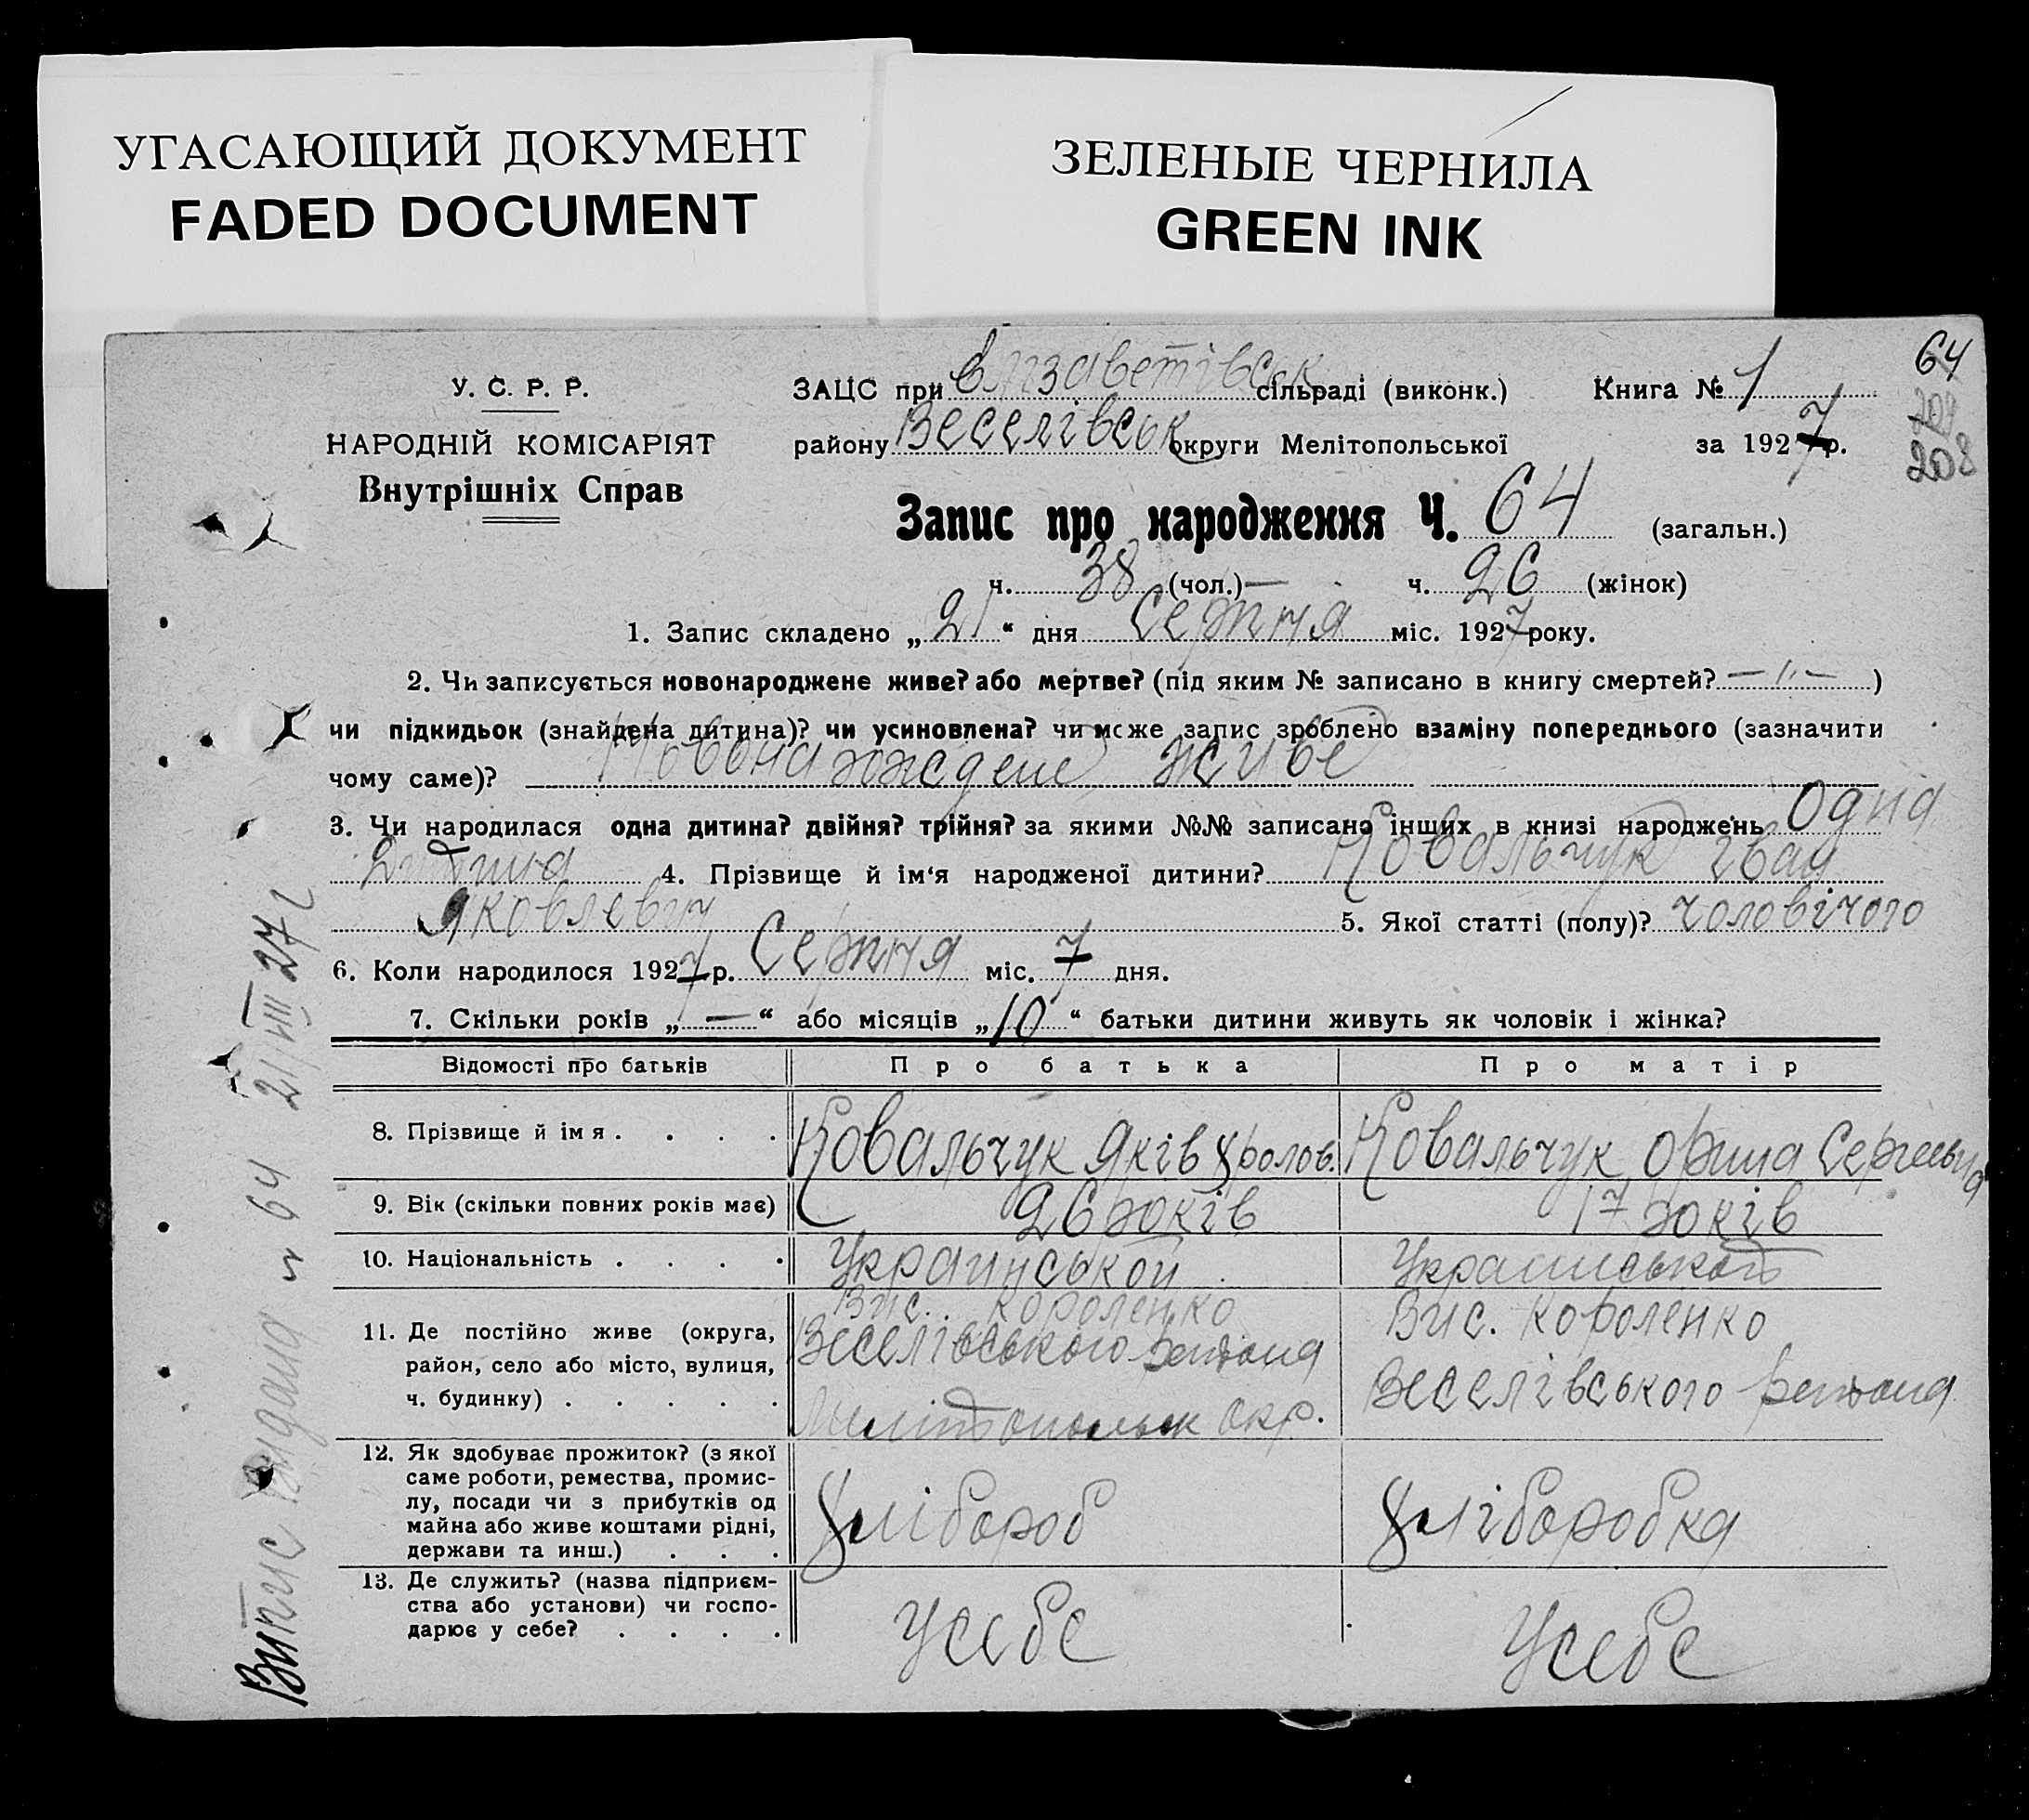 УГАСАЮЩИЙ ДОКУМЕНТ
FADED DOCUMENT
ЗЕЛЕНЫЕ ЧЕРНИЛА
GREEN INK
64
208
У. С. Р. Р.
НАРОДНІЙ КОМІСАРІЯТ
Внутрішніх Справ
ЗАЦС при Єлізаветівськ сільраді (виконк.) Книга № 1
району Веселівськ округи Мелітопольської за 1927 р.
Запис про народження Ч. 64 (загальн.)
ч. 38 (чол.) — ч. 26 (жінок)
1. Запис складено „21“ дня Серпня міс. 1927 року.
2. Чи записується новонароджене живе? або мертве? (під яким № записано в книгу смертей? — „ — )
чи підкидьок (знайдена дитина)? чи усиновлена? чи може запис зроблено взаміну попереднього (зазначити
чому саме)? Новонарождене живе
3. Чи народилася одна дитина? двійня? трійня? за якими №№ записано інших в книзі народжень Одна
дитина 4. Прізвище й ім‘я народженої дитини? Ковальчук іван
Яковлевич 5. Якої статті (полу)? чоловічого
6. Коли народилося 1927 р. Серпня міс. 7 дня.
7. Скільки років „—“ або місяців „10“ батьки дитини живуть як чоловік і жінка?
Відомості про батьків Про батька Про матір
8. Прізвище й імя . . . . Ковальчук Яків Ковальчук Орина Сергеевна
9. Вік (скільки повних років має) 26 років 17 років
10. Національність . . . . Украинськой Украинськой
11. Де постійно живе (округа, район, село або місто, вулиця, ч. будинку) . . . . .
Вис. Короленко
Веселівського района
окр.
Вис. Короленко
Веселівського района
12. Як здобуває прожиток? (з якої саме роботи, ремества, промислу, посади чи з прибутків од майна або живе коштами рідні, держави та инш.) . . .
Хлібороб Хліборобка
13. Де служить? (назва підприємства або установи) чи господарює у себе? . . . .
Усебе Усебе
Випис видана № 64 21/VIII 27 г